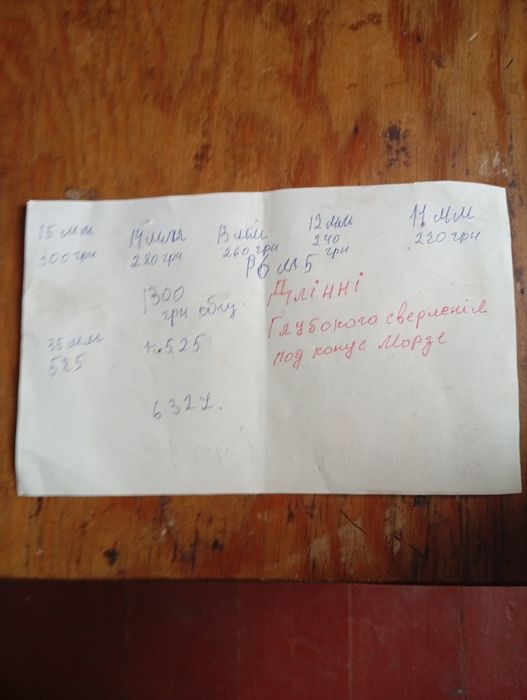 15 мм 14 мм 13 мм 12 мм 11 мм
300 грн 280 грн 260 грн 240 грн 220 грн
Р6М5
1300 Длінні
грн общ. Глубокого сверленія
35 мм +.525 под конус Морзе
525